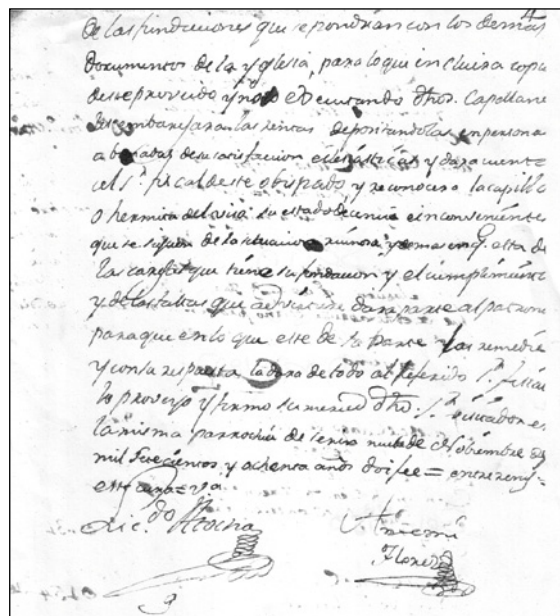 de las fundaciones que se pondran con los demas
documentos de la yglesia, para lo que incluira copia
de este proveido y no executando dhos. Capellanes
les embargara las rentas depositandolas en persona
abonadas de su satisfaccion eclesiasticas y dara cuenta
al Sr. fiscal de este obispado y reconocera la capilla
o hermita del su estado decencia e inconvenientes
que se siguen de la situacion y demas en q. esta de
las cargas que tiene su fundacion y el cumplimiento
y de las faltas que advirtiere dara parte al patrono
para que en lo que este de su parte las remedie
y con su respuesta la dara de todo al referido Sr. fiscal
lo proveyo y firmo su merced dho. Sr. visitador en
la misma parrochia de nueve de Nobiembre de
mil setecientos y ochenta años doi fee = entrereng.
=va
Lic.do Atocha
Ante mi
Florez